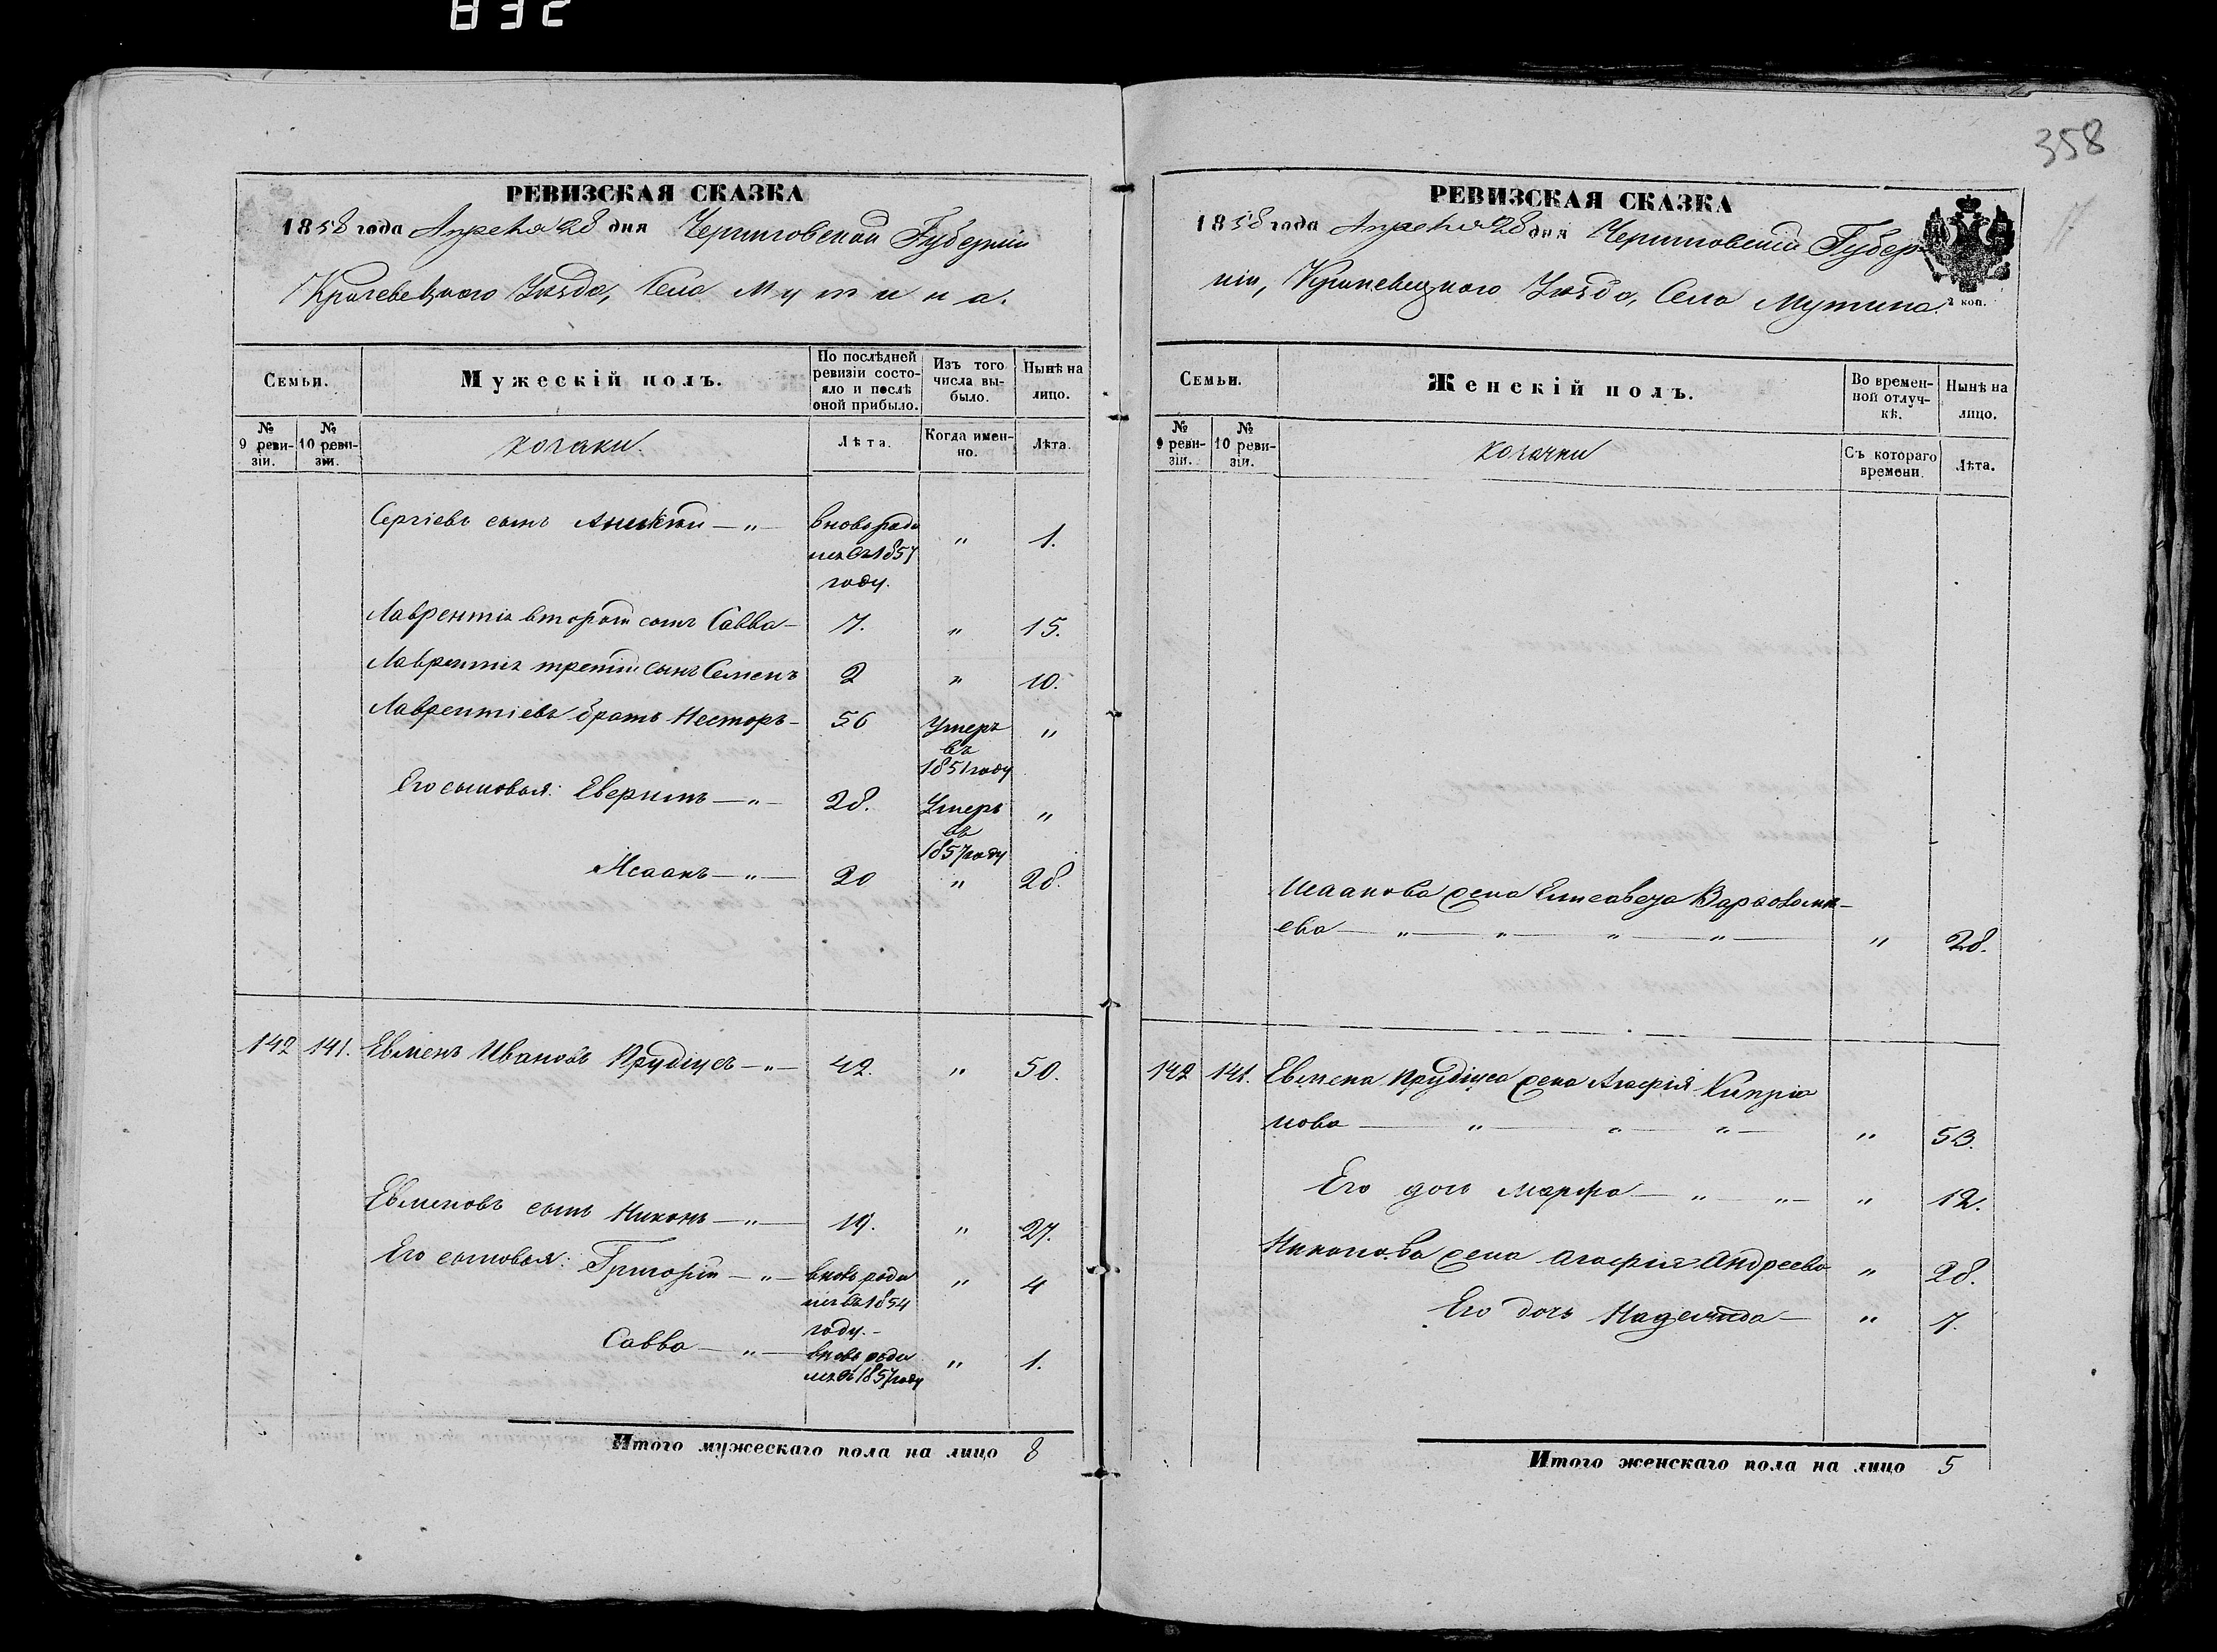 832
358
РЕВИЗСКАЯ СКАЗКА
1858 года Апреля 28 дня Черниговской Губерніи
Кролевецкого Уезда, Села Мутина.
Семьи.
Мужескій полъ.
По послѣдней
ревизіи состо-
яло и послѣ
оной прибыло.
Изъ того
числа вы-
было.
Нынѣ на
лицо.
№
9 реви-
зіи.
№
10 реви-
зіи.
козаки.
Лѣта.
Когда имен-
но.
Лѣта.
Сергіевъ сынъ — " — вновь роди " 1.
лся въ 1857
году.
Лаврентія второй сынъ Савва — 7. " 15.
Лаврентія третій сынъ Семенъ 2 " 10.
Лаврентіевъ братъ Несторъ — 56 Умеръ "
въ
1851 году
Его сыновья: — " — 28. Умеръ "
въ
1857 году
Исаакъ — " — 20 " 28.
142 141. Евменъ Ивановъ Прудіусъ — " — 42. " 50.
Евменовъ сынъ Никонъ — " — 19. " 27.
Его сыновья: Григорій — " — вновь роди " 4
лся въ 1854
году. -
Савва — " — вновь роди " 1.
лся въ 1857 году
Итого мужескаго пола на лицо 8
РЕВИЗСКАЯ СКАЗКА
1858 года Апреля 28 дня Черниговской Губер
ніи, Кролевецкого Уезда, Села Мутина.
2 коп.
Семьи.
Женскій полъ.
Во времен-
ной отлуч-
кѣ.
Нынѣ на
лицо.
№
9 реви-
зіи.
№
10 реви-
зіи.
козачки
Съ котораго
времени.
Лѣта.
Исаакова жена Елисавета Варфоломе-
ева — " — " — " — " — " 28.
142 141. Евмена Прудіуса жена Агафія Кипріа
нова — " — " — " — " 53.
Его дочь Марфа — " — " — " 12.
Никонова жена Агафія Андреева " 28.
Его дочь Надежда — " 7.
Итого женскаго пола на лицо 5